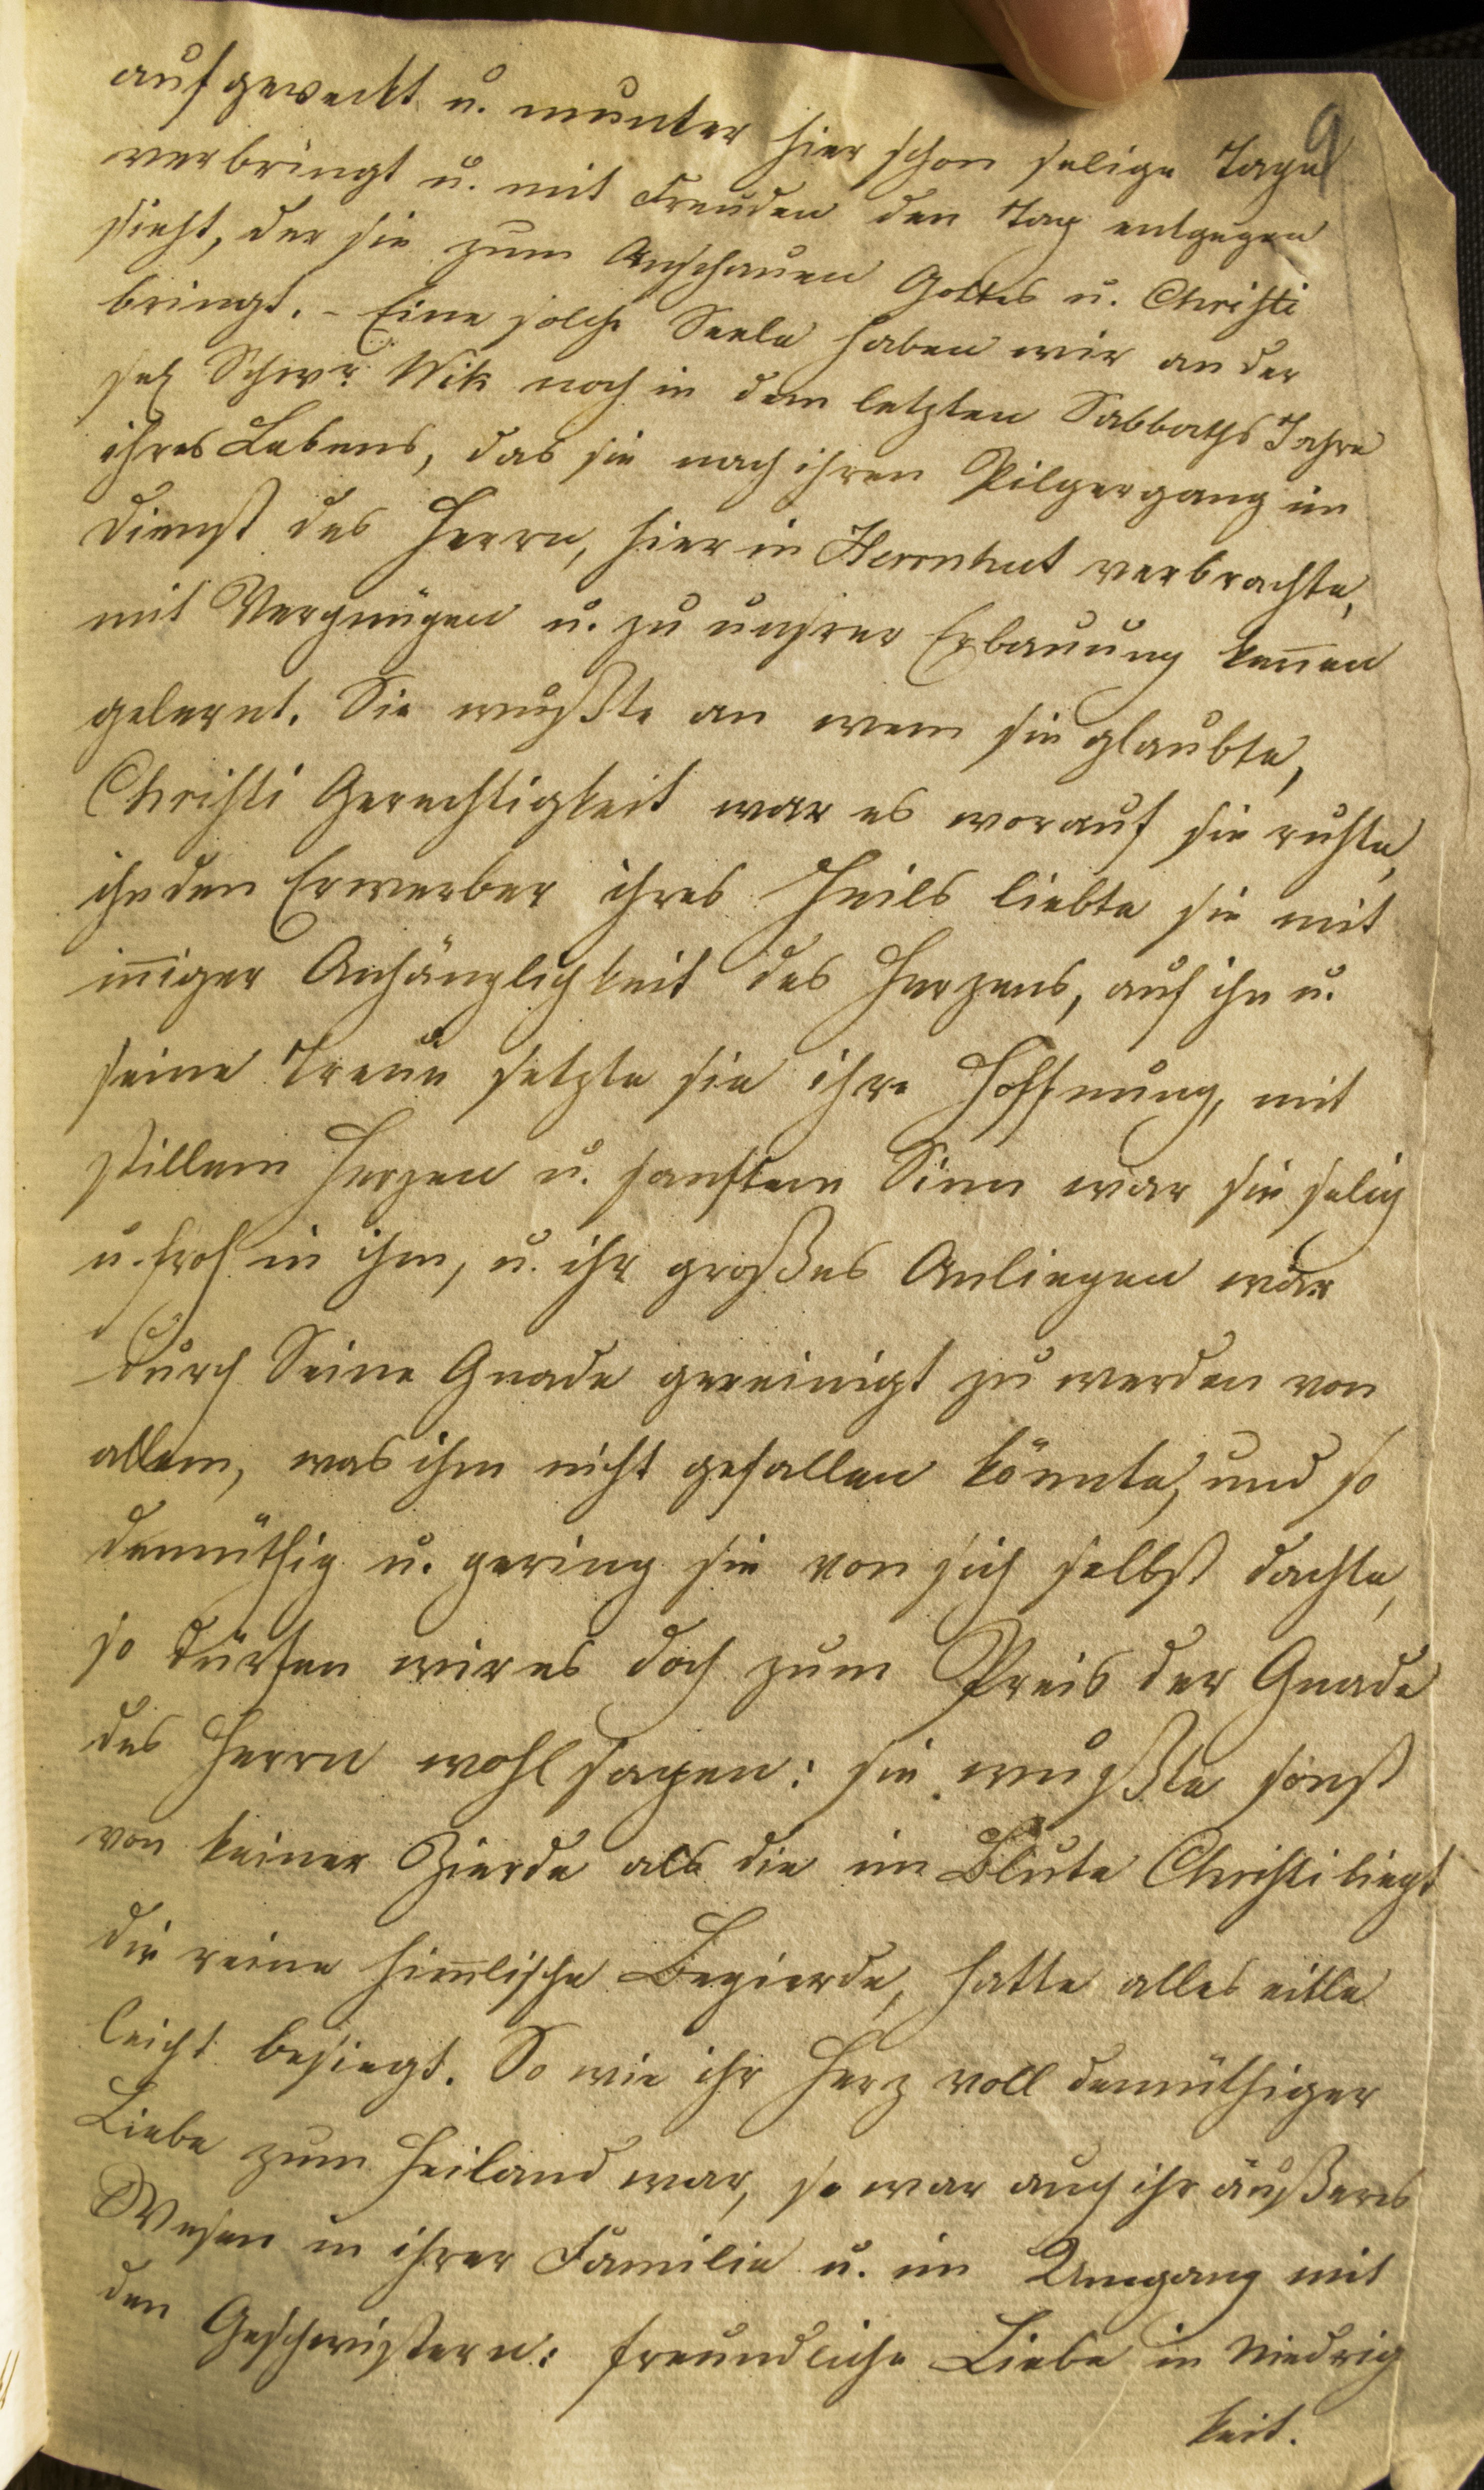 9
aufgeweckt u. munter hier schon selige Tage
verbringt u. mit Freuden den Tag entgegen
sieht, der sie zum Anschauen Gottes u. Christi
bringt. - Eine solche Seele haben wir an der
sel Schwr. Wik noch in dem letzten Sabbaths Jahre
ihres Lebens, das sie nach ihren Pilgergang im
Dienst des Herrn, hier in Herrnhut verbrachte,
mit Vergnügen u. zu unsrer Erbauung keñen
gelernt. Sie wußte an wem sie glaubte,
Christi Gerechtigkeit war es worauf sie ruhte,
ihn den Erwerber ihres Heils liebte sie mit
iñiger Anhänglichkeit des Herzens, auf ihn u.
seine Treue setzte sie ihre Hoffnung, mit
stillem Herzen u. sanftem Sinn war sie selig
u. froh in ihm, u. ihr großes Anliegen war
durch Seine Gnade gereinigt zu werden von
allem, was ihm nicht gefallen könnte, und so
demüthig u. gering sie von sich selbst dachte,
so dürfen wir es doch zum Preis der Gnade
des Herrn wohl sagen: sie wußte sonst
von keiner Zierde als die im Blute Christi liegt
die reine him̅lische Begierde, hatte alles eitle
leicht besiegt. So wie ihr Herz voll demüthiger
Liebe zum Heiland war, so war auch ihr äußeres
Wesen in ihrer Familie u. im Umgang mit
den Geschwistern: freundliche Liebe in Niedrig
keit.